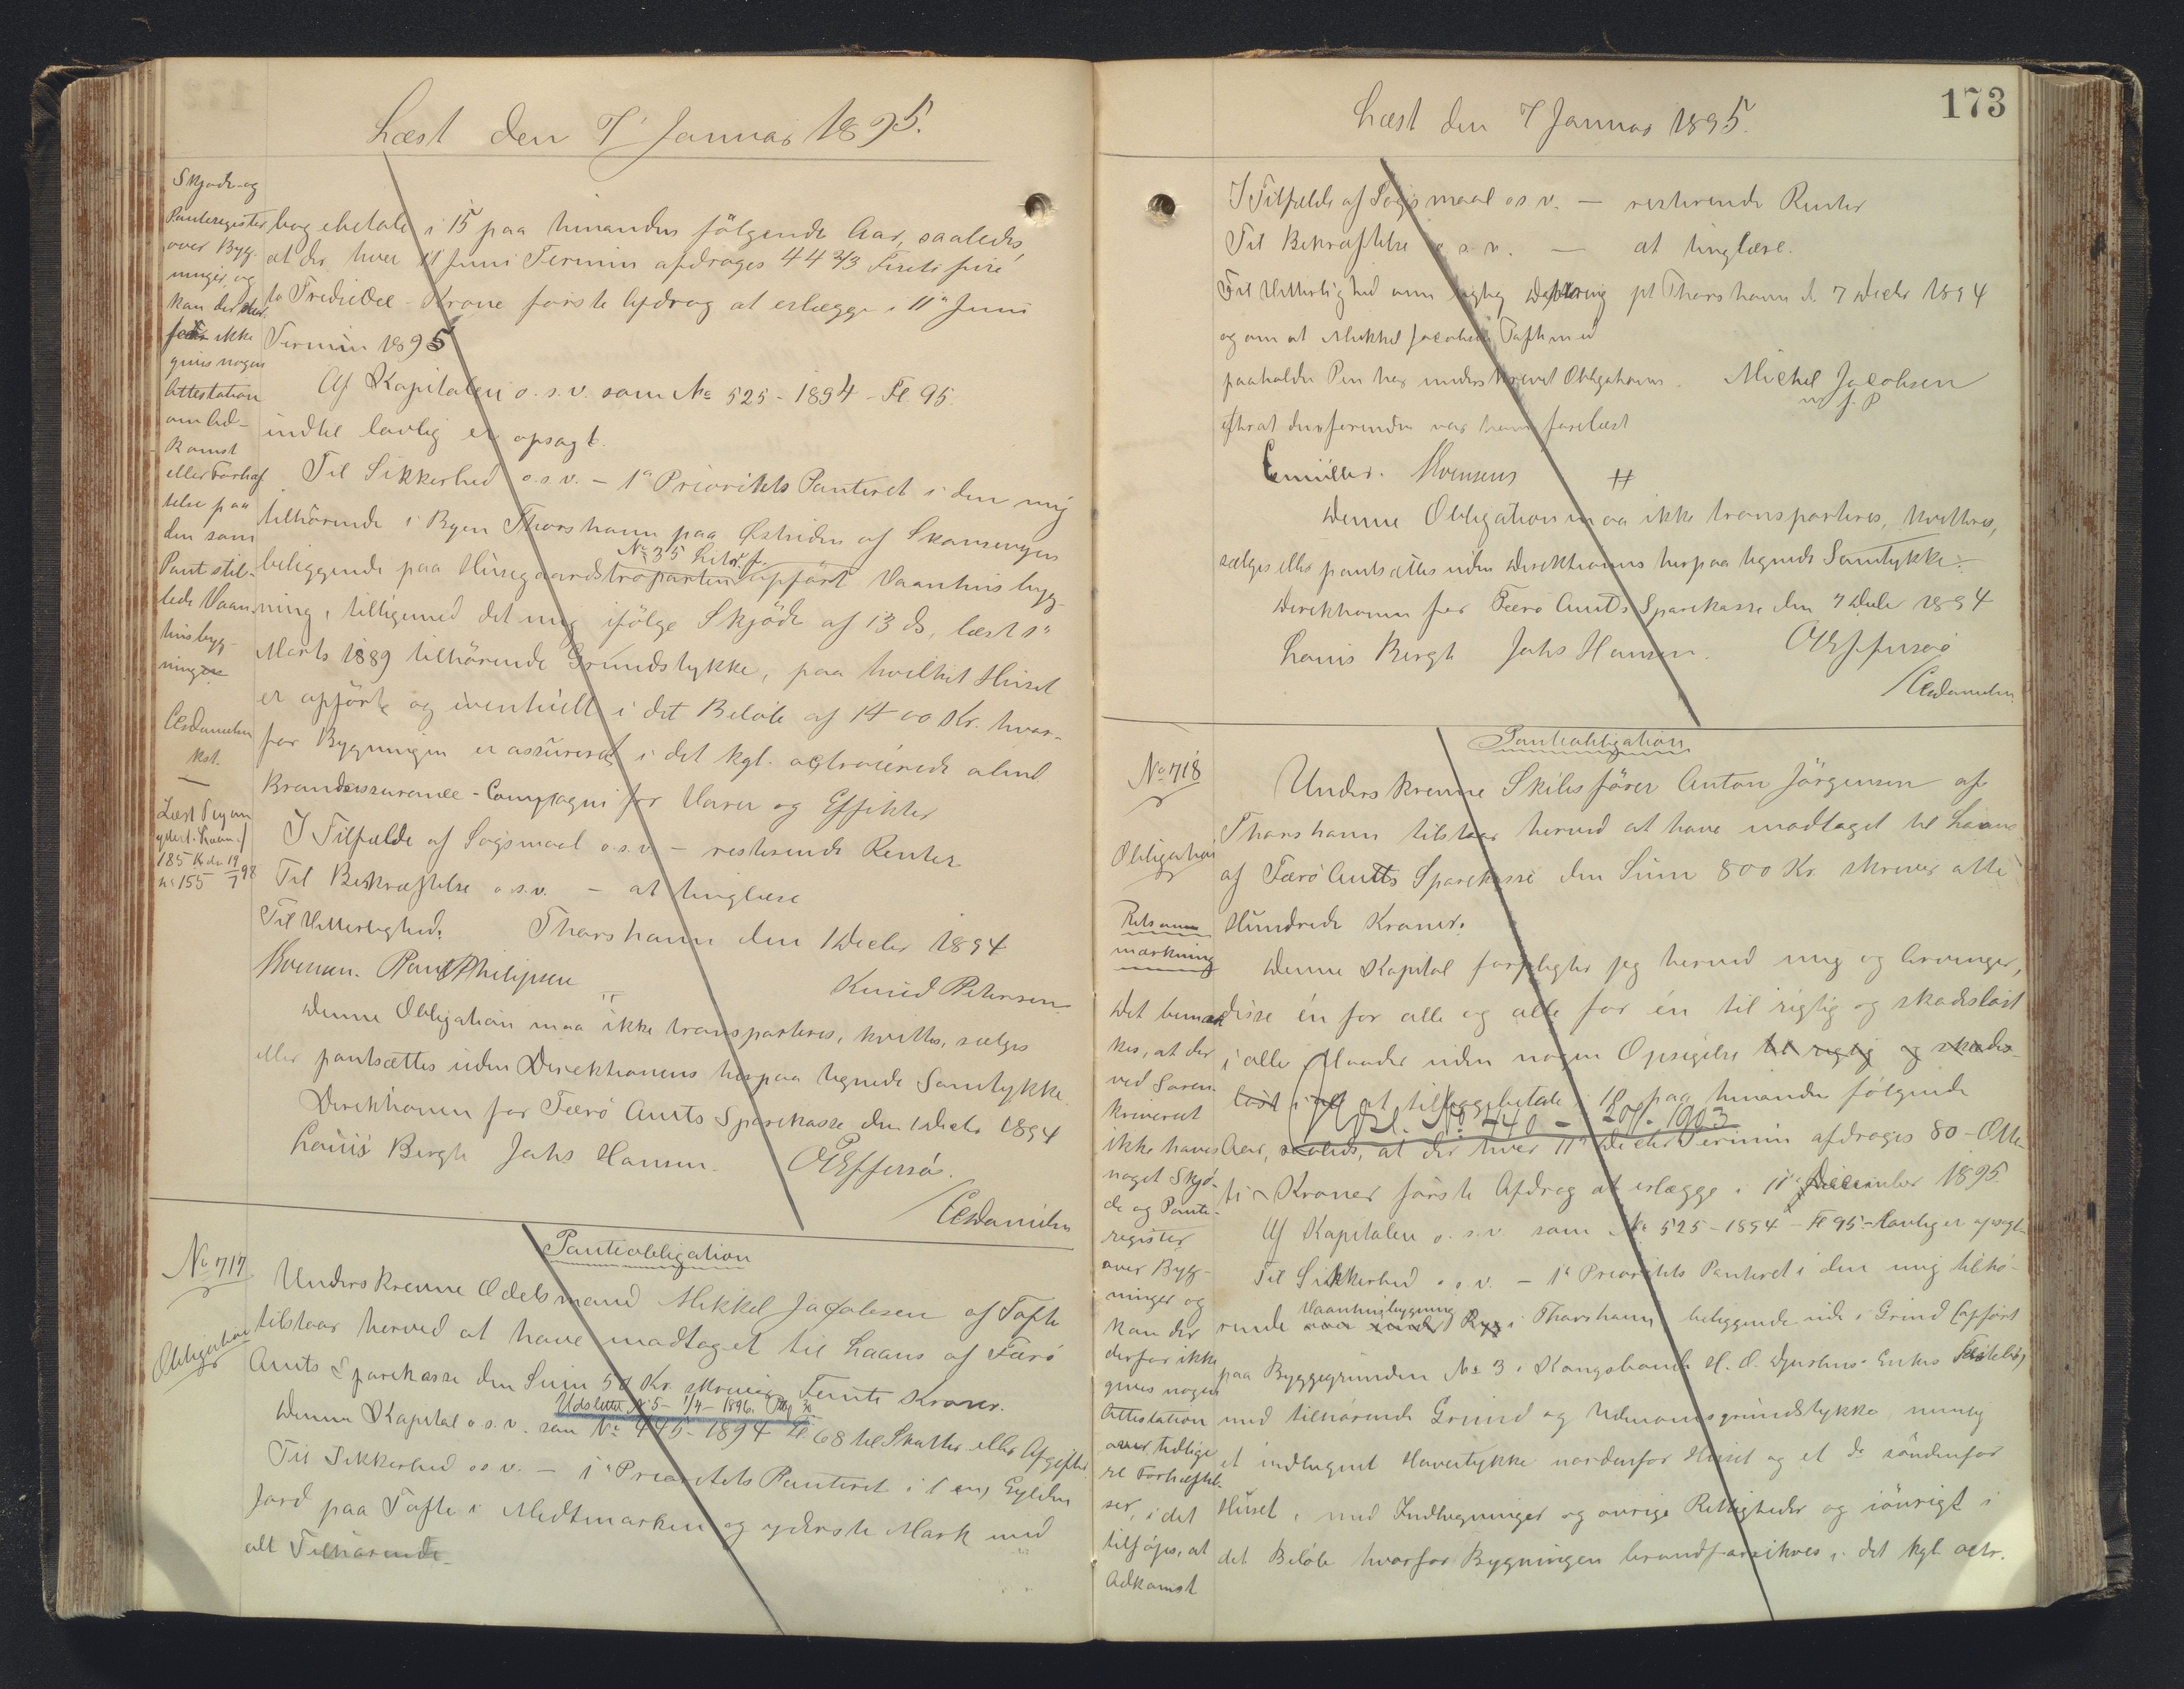 Læst den 7' Januar 1895.
Skjøde- og
Panteregister
over Byg-
ninger, og
kan der der-
for ikke
gives nogen
Attestation
om Ad-
komst
eller Forhæf-
telse paa
den som
Pant stil-
lede Vaan-
husbyg-
ning
CDanielsen
kst.
185 Kr
No 155
bagebetale i 15 paa hinanden følgende Aar, saaledes,
at der hver 11 Juni Termin afdrages 44 2/3 Firetifire
to Trediedel - Krone første Afdrag at erlægge i 11' Juni
Termin 1895
Af Kapitalen o.s.v. som No 525 - 1894 - Fl. 95.
indtil lovlig er opsagt.
Til Sikkerhed o.s.v. - 1' Prioritets Panteret i den mig
tilhørende i Byen Thorshavn paa Østsiden af Skansevejen
No 35 Litr. f.
beliggende paa Husegaardstroparten opført Vaanhusbyg-
ning, tilligemed det mig ifølge Skjøde af 13 ds, læst 1'
Marts 1889 tilhørende Grundstykke, paa hvilket Huset
er opført og eventuelt i det Beløb af 1400 Kr. hvor-
for Bygningen er assureret i det kgl. octroierede almd
Brandassurance-Compagni for Varer og Effekter
I Tilfælde af Søgsmaal o.s.v. - resterende Renter
Til Bekræftelse o.s.v. - at tinglæse
Til Vitterlighed: Thorshavn den 1 Decbr 1894
Poul Philipsen
Knud Petersen
Denne Obligation maa ikke transporteres, kvittes, sælges
eller pantsættes uden Direktionens herpaa tegnede Samtykke.
Direktionen for Færø Amts Sparekasse den 1 Decbr 1894
Louis Bergh Johs Hansen. OEffersøe.
CDanielsen
No 717
Obligation
Panteobligation
Underskrevne Odelsmand Mikkel Jacobsen af Tofte
tilstaar herved at have modtaget til Laans af Færø
Amts Sparekasse den Sum 50 Kr. skriver Femti Kroner.
Udslettet No 5 - 1/4 - 1896.
Denne Kapital o.s.v. som No 445 - 1894 Fl 68 til Skatter eller Afgifter.
Til Sikkerhed o.s.v. - 1' Prioritets Panteret i 1 en, Gylden
Jord paa Tofte i Midtmarken og yderste Mark med
alt Tilhørende.
173
Læst den 7 Januar 1895.
I Tilfælde af Søgsmaal o.s.v. - resterende Renter
Til Bekræftelse o.s.v. - at tinglæse.
Til Vitterlighed om rigtig Datering pt Thorshavn d. 7 Decbr 1894
og om at Mikkel Jacobsen Tofte med
paaholden Pen har underskrevet Obligationen. Michel Jacobsen
m f. P
efterat den forinden var ham forelæst
CMüller.
Denne Obligation maa ikke transporteres, kvitteres,
sælges eller pantsættes uden Direktionens herpaa tegnede Samtykke
Direktionen for Færø Amts Sparekasse den 7 Decbr 1894
Louis Bergh Johs Hansen. OEffersøe
CDanielsen
No 718
Obligation
Retsanm
mærkning
Det bemær-
kes, at der
ved Soren-
kriveriet
ikke haves
noget Skjø-
de og Pante-
register
over Byg-
ninger og
kan der
derfor ikke
gives nogen
Attestation
over tidlige
re Forhæftel-
ser, i det
tilføjes, at
Adkomst
Panteobligation
Underskrevne Skibsfører Anton Jörgensen af
Thorshavn tilstaar herved at have modtaget til Laans
af Færø Amts Sparekasse den Sum 800 Kr. skriver otte
Hundrede Kroner.
Denne Kapital forpligter jeg herved mig og Arvinger,
disse én for alle og alle for én til rigtig og skadesløst
i alle Maader uden nogen Opsigelse til rigtig og skades-
løst i alt at tilbagebetale i 10 paa hinanden følgende
Udsl. No 740 - 1903
Aar, saaledes, at der hver 11' Decbr Termin afdrages 80 - Otte-
ti - Kroner første Afdrag at erlægge i 11' December 1895.
Af Kapitalen o.s.v. som No 525 - 1894 - Fl 95 - lovlig er opsagt.
Til Sikkerhed o.s.v. - 1' Prioritets Panteret i den mig tilhø-
Vaanhusbygning
rende i Thorshavn beliggende ude i Grind (opført
paa Byggegrunden No 3 i Kongsbonde H. O. Djurhuus' Enkes Fæstelod)
med tilhørende Grund og Udmarksgrundstykke nemlig
et indhegnet Havestykke nordenfor Huset og et do söndenfor
Huset, med Indhegninger og øvrige Rettigheder og iøvrigt i
det Beløb hvorfor Bygningen brandforsikres i det kgl. octr.